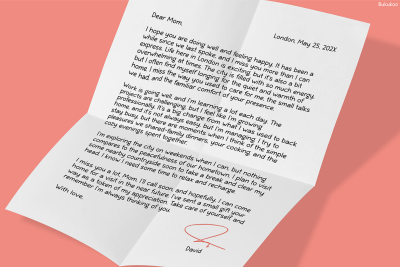 Dear Mom,
London, May 25, 202X
I hope you are doing well and feeling happy. It has been a
while since we last spoke, and I miss you more than I can
express. Life here in London is exciting, but it's also a bit
overwhelming at times. The city is filled with so much energy,
but I often find myself longing for the quiet and warmth of
home. I miss the way you used to care for me, the small talks
we had, and the familiar comfort of your presence.
Work is going well, and I'm learning a lot each day. The
projects are challenging, but I feel like I'm growing
professionally. It's a big change from what I was used to back
home, and it's not always easy, but I'm managing. I try to
stay busy, but there are moments when I think of the simple
pleasures we shared-family dinners, your cooking, and the
cozy evenings spent together.
I'm exploring the city on weekends when I can, but nothing
compares to the peacefulness of our hometown. I plan to visit
some nearby countryside soon to take a break and clear my
head. I know I need some time to relax and recharge
I miss you a lot, Mom. I'll call soon, and hopefully, I can come
home for a visit in the near future. I've sent a small gift your
way as a token of my appreciation. Take care of yourself, and
remember I'm always thinking of you.
With love,
David